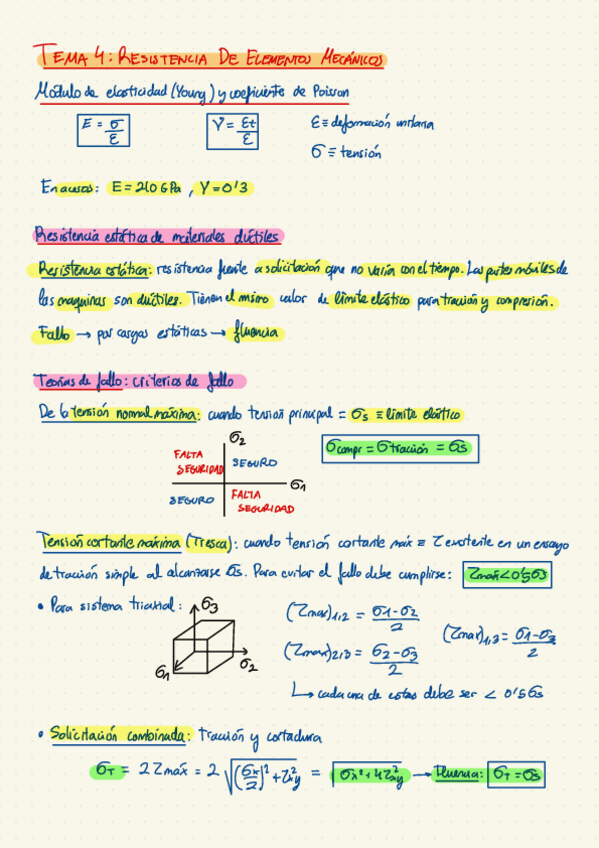 TEMA 4: RESISTENCIA DE ELEMENTOS MECÁNICOS
Módulo de elasticidad (Young) y coeficiente de Poisson
E = σ/ε
γ = εt/ε
ε ≡ deformación unitaria
σ ≡ tensión
En aceros: E = 210 GPa, γ = 0'3
Resistencia estática de materiales dúctiles
Resistencia estática: resistencia frente a solicitación que no varía con el tiempo. Las partes móviles de
las maquinas son dúctiles. Tienen el mismo valor de límite elástico para tracción y compresión.
Fallo → por cargas estáticas → fluencia
Teorías de fallo: criterios de fallo
De la tensión normal máxima: cuando tensión principal = σs ≡ límite elástico
σ2
FALTA SEGURIDAD
SEGURO
σ1
SEGURO
FALTA SEGURIDAD
σcompr = σtracción = σs
Tensión cortante máxima (Tresca): cuando tensión cortante máx ≡ τ existente en un ensayo
de tracción simple al alcanzarse σs. Para evitar el fallo debe cumplirse: τmax < 0'5σs
• Para sistema triaxial:
σ3
σ2
σ1
(τmax)1,2 = (σ1-σ2)/2
(τmax)2,3 = (σ2-σ3)/2
(τmax)1,3 = (σ1-σ3)/2
↳ cada una de estas debe ser < 0'5σs
• Solicitación combinada: tracción y cortadura
σT = 2τmáx = 2√((σx/2)² + τ²xy) = √(σx² + 4τ²xy) → Fluencia: σT = σs